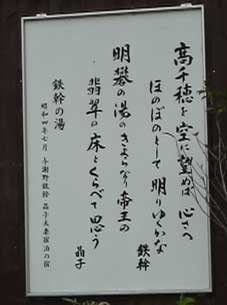 高千穂を空に望めば心さへ
ほのぼのとして明りゆかな
鉄幹
明礬の湯のきよらなり帝王の
翡翠の床とくらべて思う
晶子
鉄幹の湯
昭和四年七月 与謝野鉄幹 晶子夫妻宿泊の宿